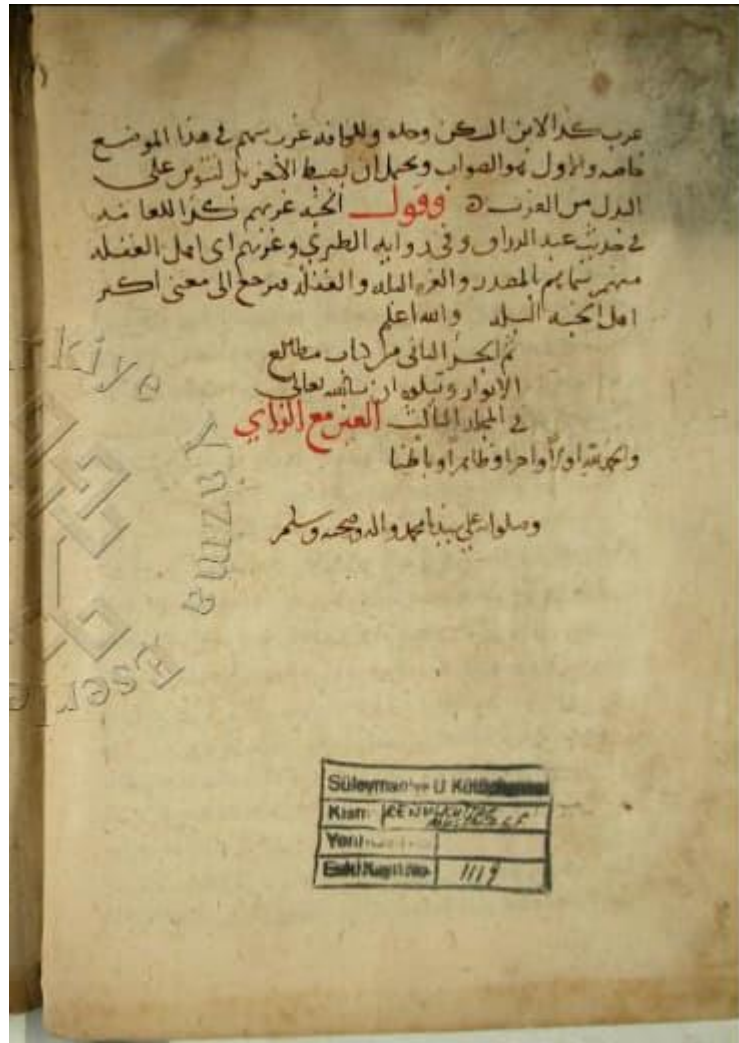 عرب كذا لابن السكن وحده وللكافة غرر سهم في هذا الموضع
خاصة والاول هو الصواب ويحتمل ان يضبط الأخر بل لتنوين على
البدل من الغرب وقول الجنة غرتهم كذا للكافة
في حديث عبد الرزاق وفي رواية الطبري وغرتهم اى اهل الغفلة
منهم بالمصدر والغرة البله والغفلة فيرجع الى معنى اكثر
اهل الجنة البله والله اعلم
تم الجزء الثاني من كتاب مطالع
الانوار ويتلوه ان شاء الله تعالى
في المجلد الثالث العين مع الزاي
والحمد لله اولا واخرا وظاهرا وباطنا
وصلواته على سيدنا محمد واله وصحبه وسلم
Türkiye Yazma Eserle
Süleymaniye U Kütüphanesi
Kısmı
Yeni
Eski Kayıt No 1119